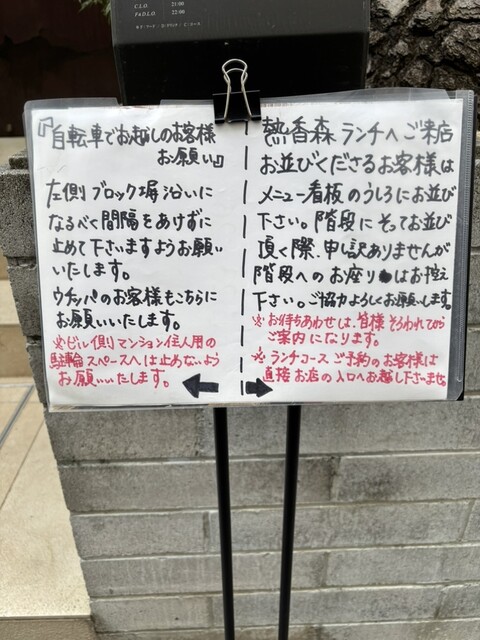 C.L.O. 21:00
F&D.L.O. 22:00
『自転車でお越しのお客様
お願い』
左側ブロック塀沿いに
なるべく間隔をあけずに
止めて下さいますようお願い
いたします。
ウチッパのお客様もこちらに
お願いいたします。
※ビル側リマンション住人用の
駐輪スペースへは止めないよう
お願いいたします。
熱香森ランチへご来店
お並びくださるお客様は
メニュー看板のうしろにお並び
下さい。階段にそってお並び
頂く際、申し訳ありませんが
階段へのお座りはお控え
下さい。ご協力よろしくお願いします。
※お待ちあわせは、皆様そろわれてから
ご案内になります。
※ランチコースご予約のお客様は
直接お店の入口へお越し下さいませ